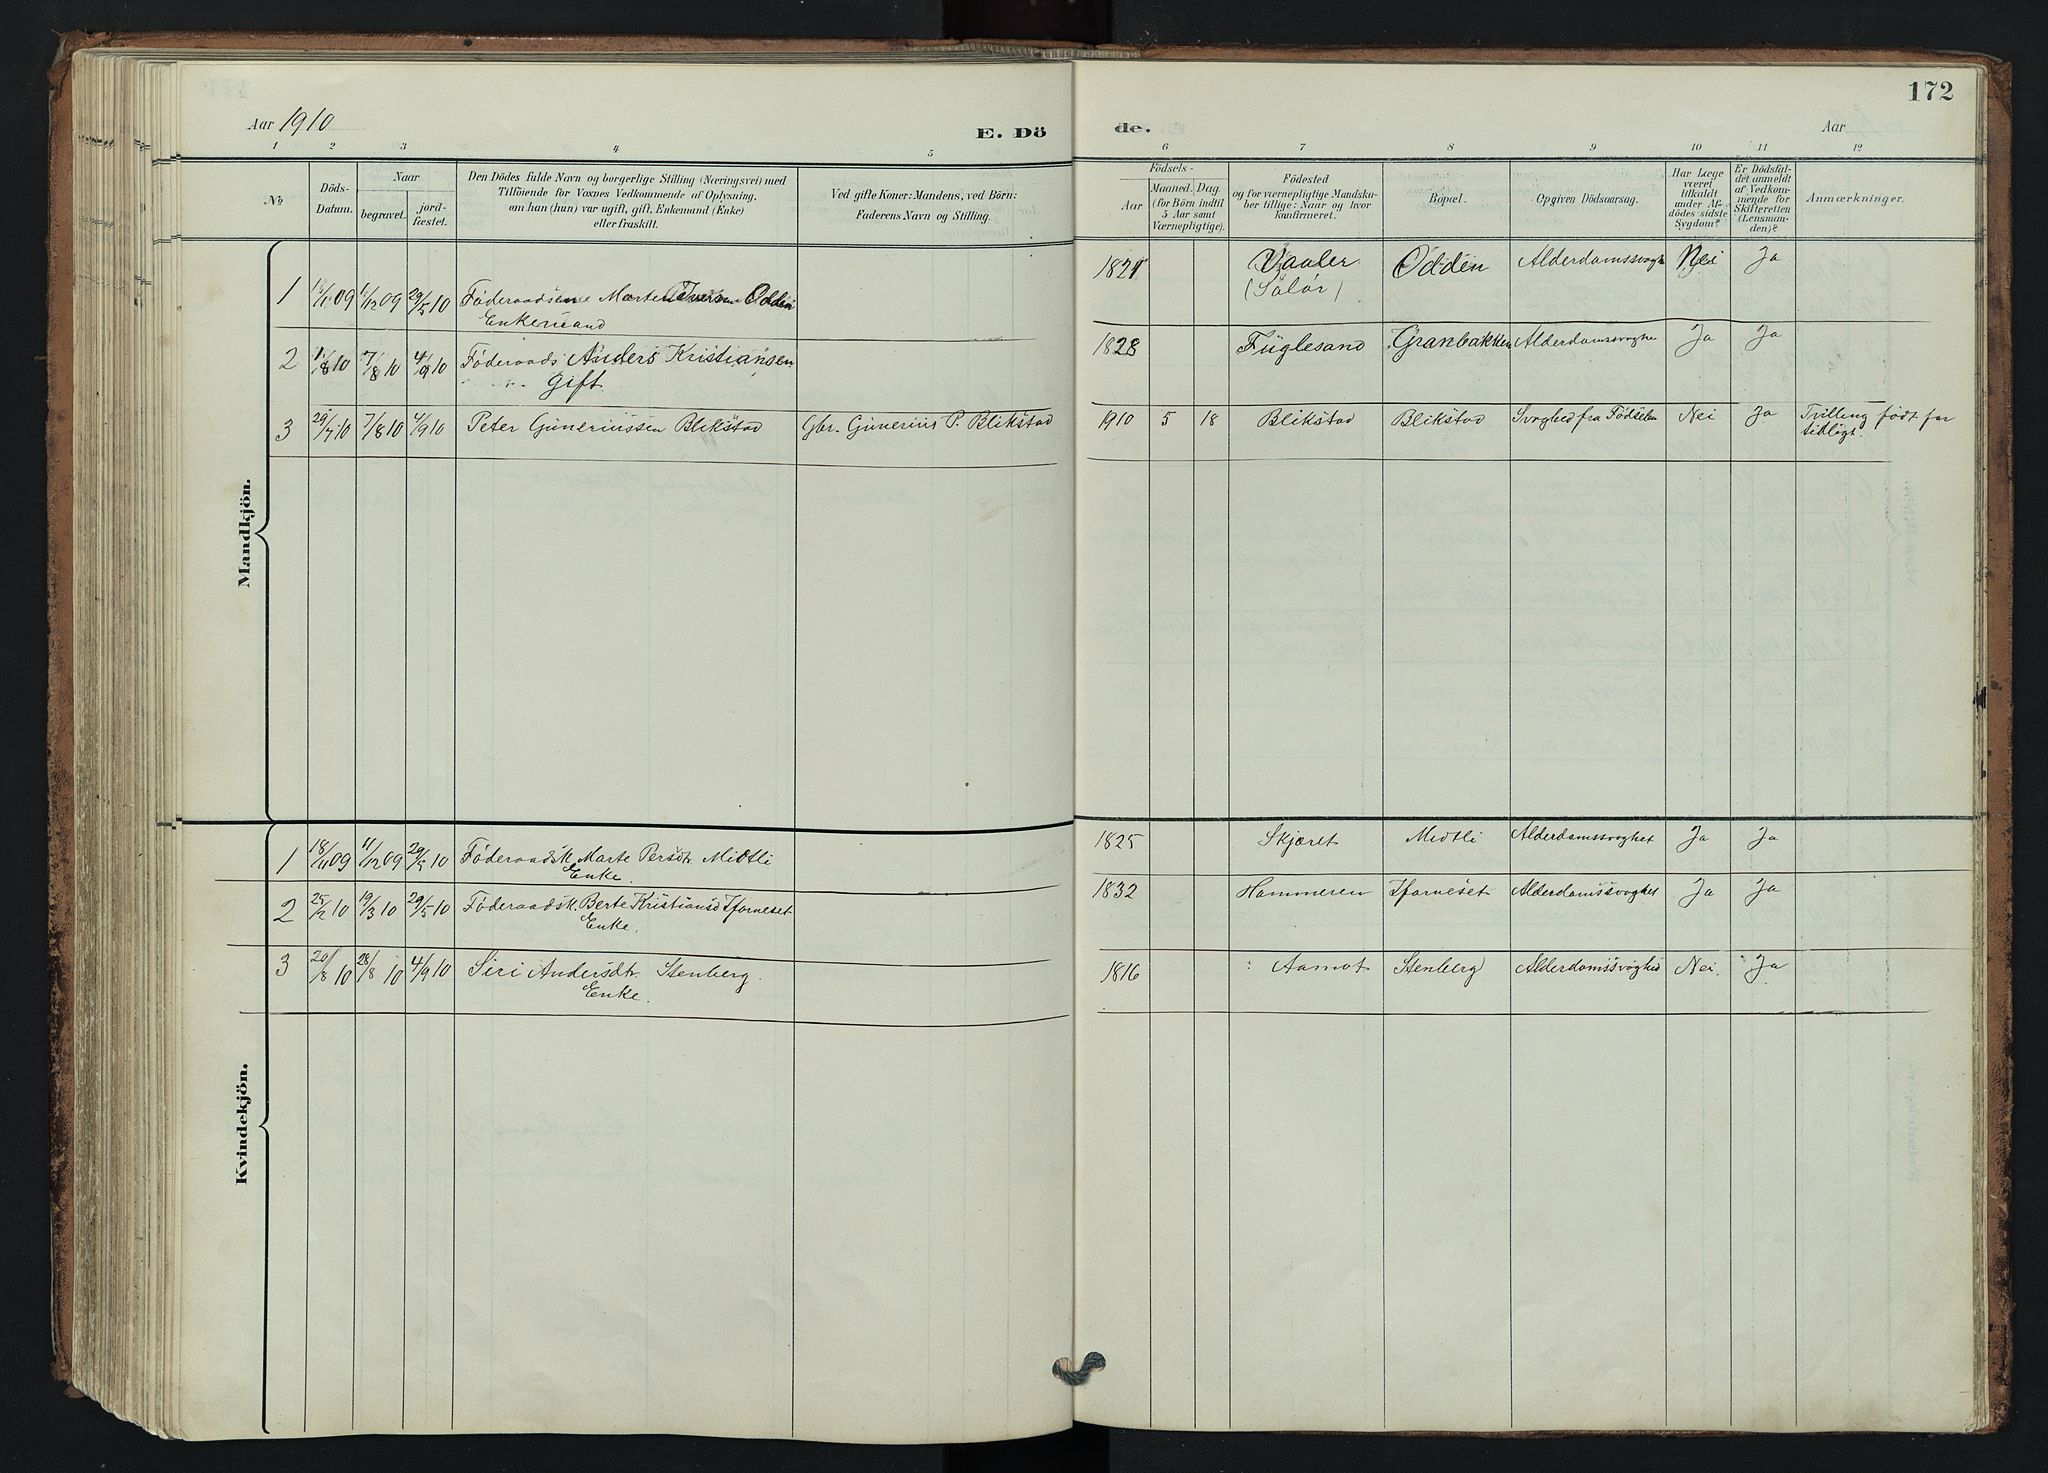 172
Aar 1910
E. Dö
de.
Aar
1 2 3 4 5 6 7 8 9 10 11 12
No
Döds-
Datum.
Naar
begravet.
jord-
fæstet.
Den Dödes fulde Navn og borgerlige Stilling (Næringsvei) med
Tilföiende for Voxnes Vedkommende af Oplysning,
om han (hun) var ugift, gift, Enkemand (Enke)
eller fraskilt.
Ved gifte Koner: Mandens, ved Börn:
Faderens Navn og Stilling.
Födsels-
Aar
Maaned. Dag.
(for Börn indtil
5 Aar samt
Værnepligtige).
Födested
og for værnepligtige Mandska-
ber tillige: Naar og hvor
konfirmeret.
Bopæl.
Opgiven Dödsaarsag.
Har Læge
været
tilkaldt
under Af-
dödes sidste
Sygdom?
Er Dödsfal-
det anmeldt
af Vedkom-
mende for
Skifteretten
(Lensman-
den)?
Anmærkninger.
Mandkjön.
1 09 1/12 09 29/5 10 Føderaadsm Marten Iversen Odden
Enkemand
1821 Vaaler Odden Alderdomssvaghe Nei Ja
(Solør)
2 1/8 10 7/8 10 4/9 10 Føderaads Anders Kristiansen
gift
1828 Fuglesand Granbakken Alderdomssvaghe Ja Ja
3 29/7 10 7/8 10 4/9 10 Peter Guneriussen Blikstad Gbr. Gunerius P. Blikstad
1910 5 18 Blikstad Blikstad Svaghed fra Fødselen Nei Ja Tvilling født for
tidligt.
Kvindekjön.
1 18/11 09 11/12 09 29/5 10 Føderaadsk Marte Persdtr Midtli
Enke.
1825 Skjæret Midtli Alderdomssvaghet Ja Ja
2 25/2 10 19/3 10 29/5 10 Føderaadsk Berte Kristiansd Tfarneset
Enke.
1832 Hammeren Tfarneset Alderdomssvaghet Ja Ja
3 20/8 10 28/8 10 4/9 10 Siri Andersdtr Stenberg.
Enke.
1816 Aamot Stenberg Alderdomssvaghed Nei. Ja